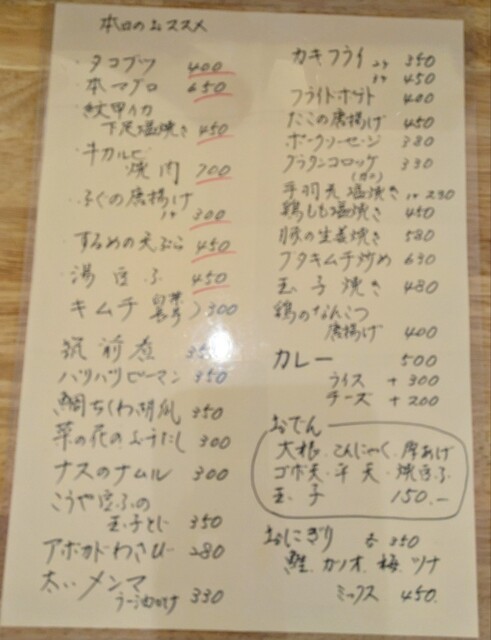 本日のおススメ
・タコブツ 400
・本マグロ 650
・紋甲イカ
下足塩焼き 450
・牛カルビ
焼肉 700
・ふぐの唐揚げ
1ヶ 300
・するめの天ぷら 450
・湯豆ふ 450
キムチ 白菜 長芋 300
筑前煮 350
パリパリピーマン 350
鯛ちくわ胡瓜 350
菜の花のおひたし 300
ナスのナムル 300
こうや豆ふの
玉子とじ 350
アボカドわさび 280
太いメンマ
ラー油のけ 330
カキフライ 2ヶ 350
3ヶ 450
フライドポテト 400
たこの唐揚げ 450
ポークソーセージ 380
グラタンコロッケ 390
(カニ)
手羽先塩焼き 1ヶ 290
鶏もも塩焼き 450
豚の生姜焼き 580
ブタキムチ炒め 630
玉子焼き 480
鶏のなんこつ
唐揚げ 400
カレー 500
ライス +300
チーズ +200
おでん
大根、こんにゃく、厚あげ
ゴボ天、平天、焼豆ふ
玉子 150.-
おにぎり 各 350
鮭、カツオ、梅、ツナ
ミックス 450.